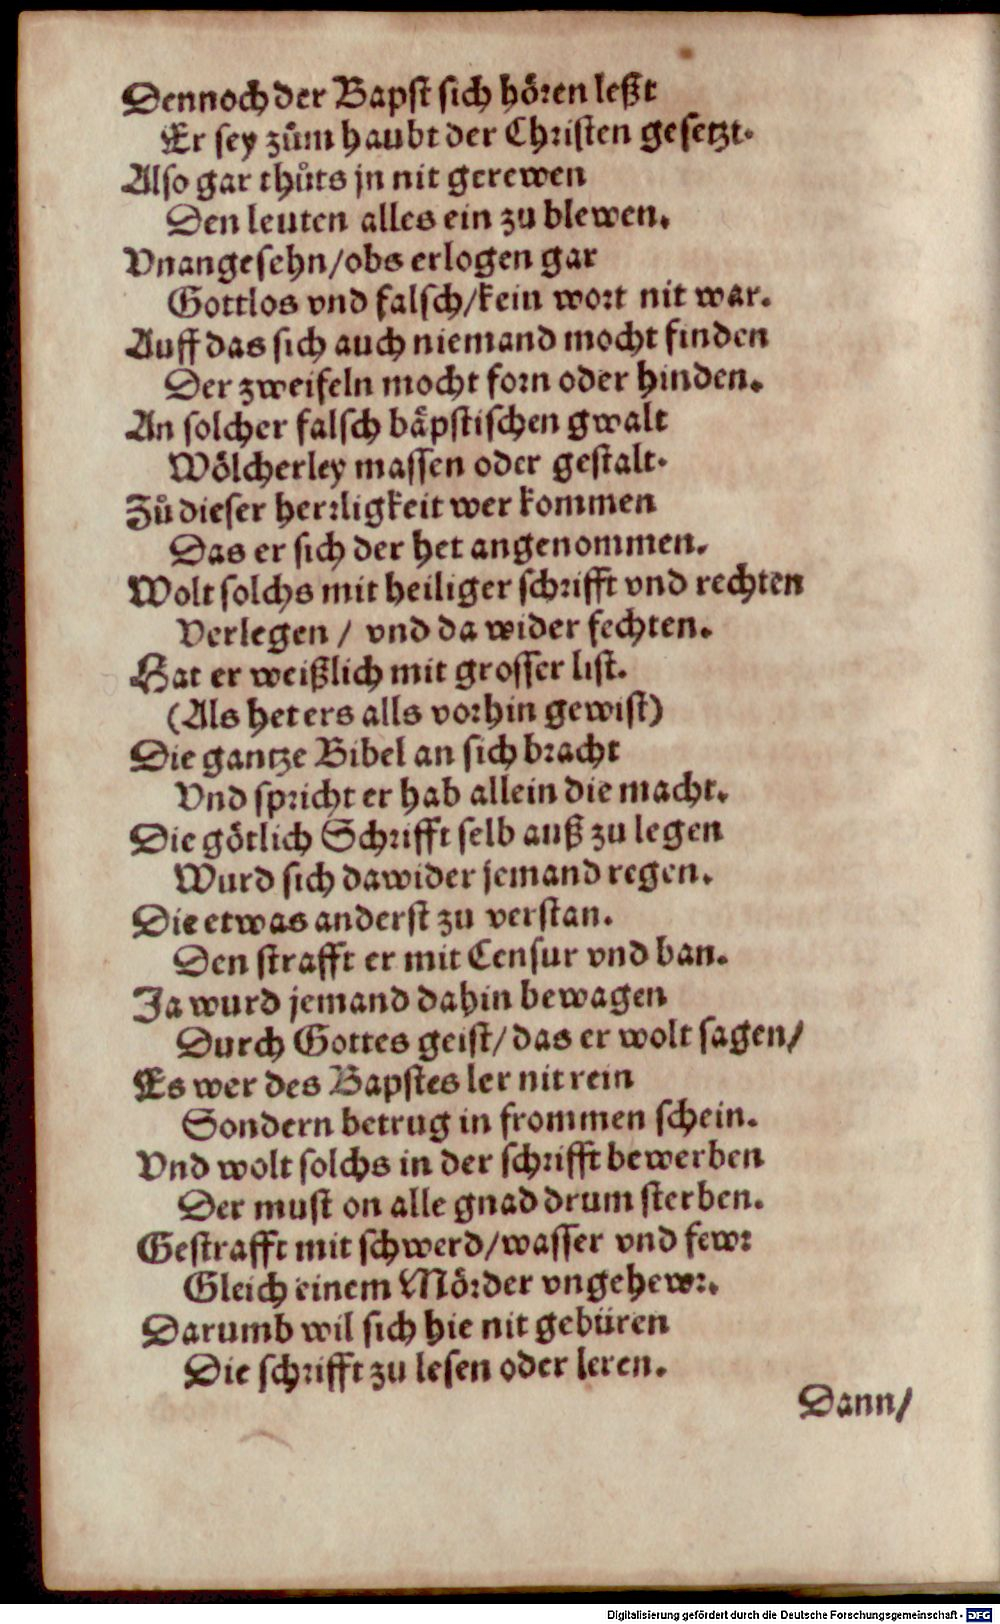 Dennoch der Bapst sich hören leßt
Er sey zům haubt der Christen gesetzt.
Also gar thůts jn nit gerewen
Den leuten alles ein zu blewen.
Vnangesehn/obs erlogen gar
Gottlos vnd falsch/kein wort nit war.
Auff das sich auch niemand mocht finden
Der zweifeln mocht forn oder hinden.
An solcher falsch bäpstischen gwalt
Wölcherley massen oder gestalt.
Zů dieser herrligkeit wer kommen
Das er sich der het angenommen.
Wolt solchs mit heiliger schrifft vnd rechten
Verlegen / vnd da wider fechten.
Hat er weißlich mit grosser list.
(Als het ers alls vorhin gewist)
Die gantze Bibel an sich bracht
Vnd spricht er hab allein die macht.
Die götlich Schrifft selb auß zu legen
Wurd sich dawider jemand regen.
Die etwas anderst zu verstan.
Den strafft er mit Censur vnd ban.
Ja wurd jemand dahin bewagen
Durch Gottes geist/das er wolt sagen/
Es wer des Bapstes ler nit rein
Sondern betrug in frommen schein.
Vnd wolt solchs in der schrifft bewerben
Der must on alle gnad drum sterben.
Gestrafft mit schwerd/wasser vnd fewr
Gleich einem Mörder vngehewr.
Darumb wil sich hie nit gebüren
Die schrifft zu lesen oder leren.
Dann/
Digitalisierung gefördert durch die Deutsche Forschungsgemeinschaft - DFG